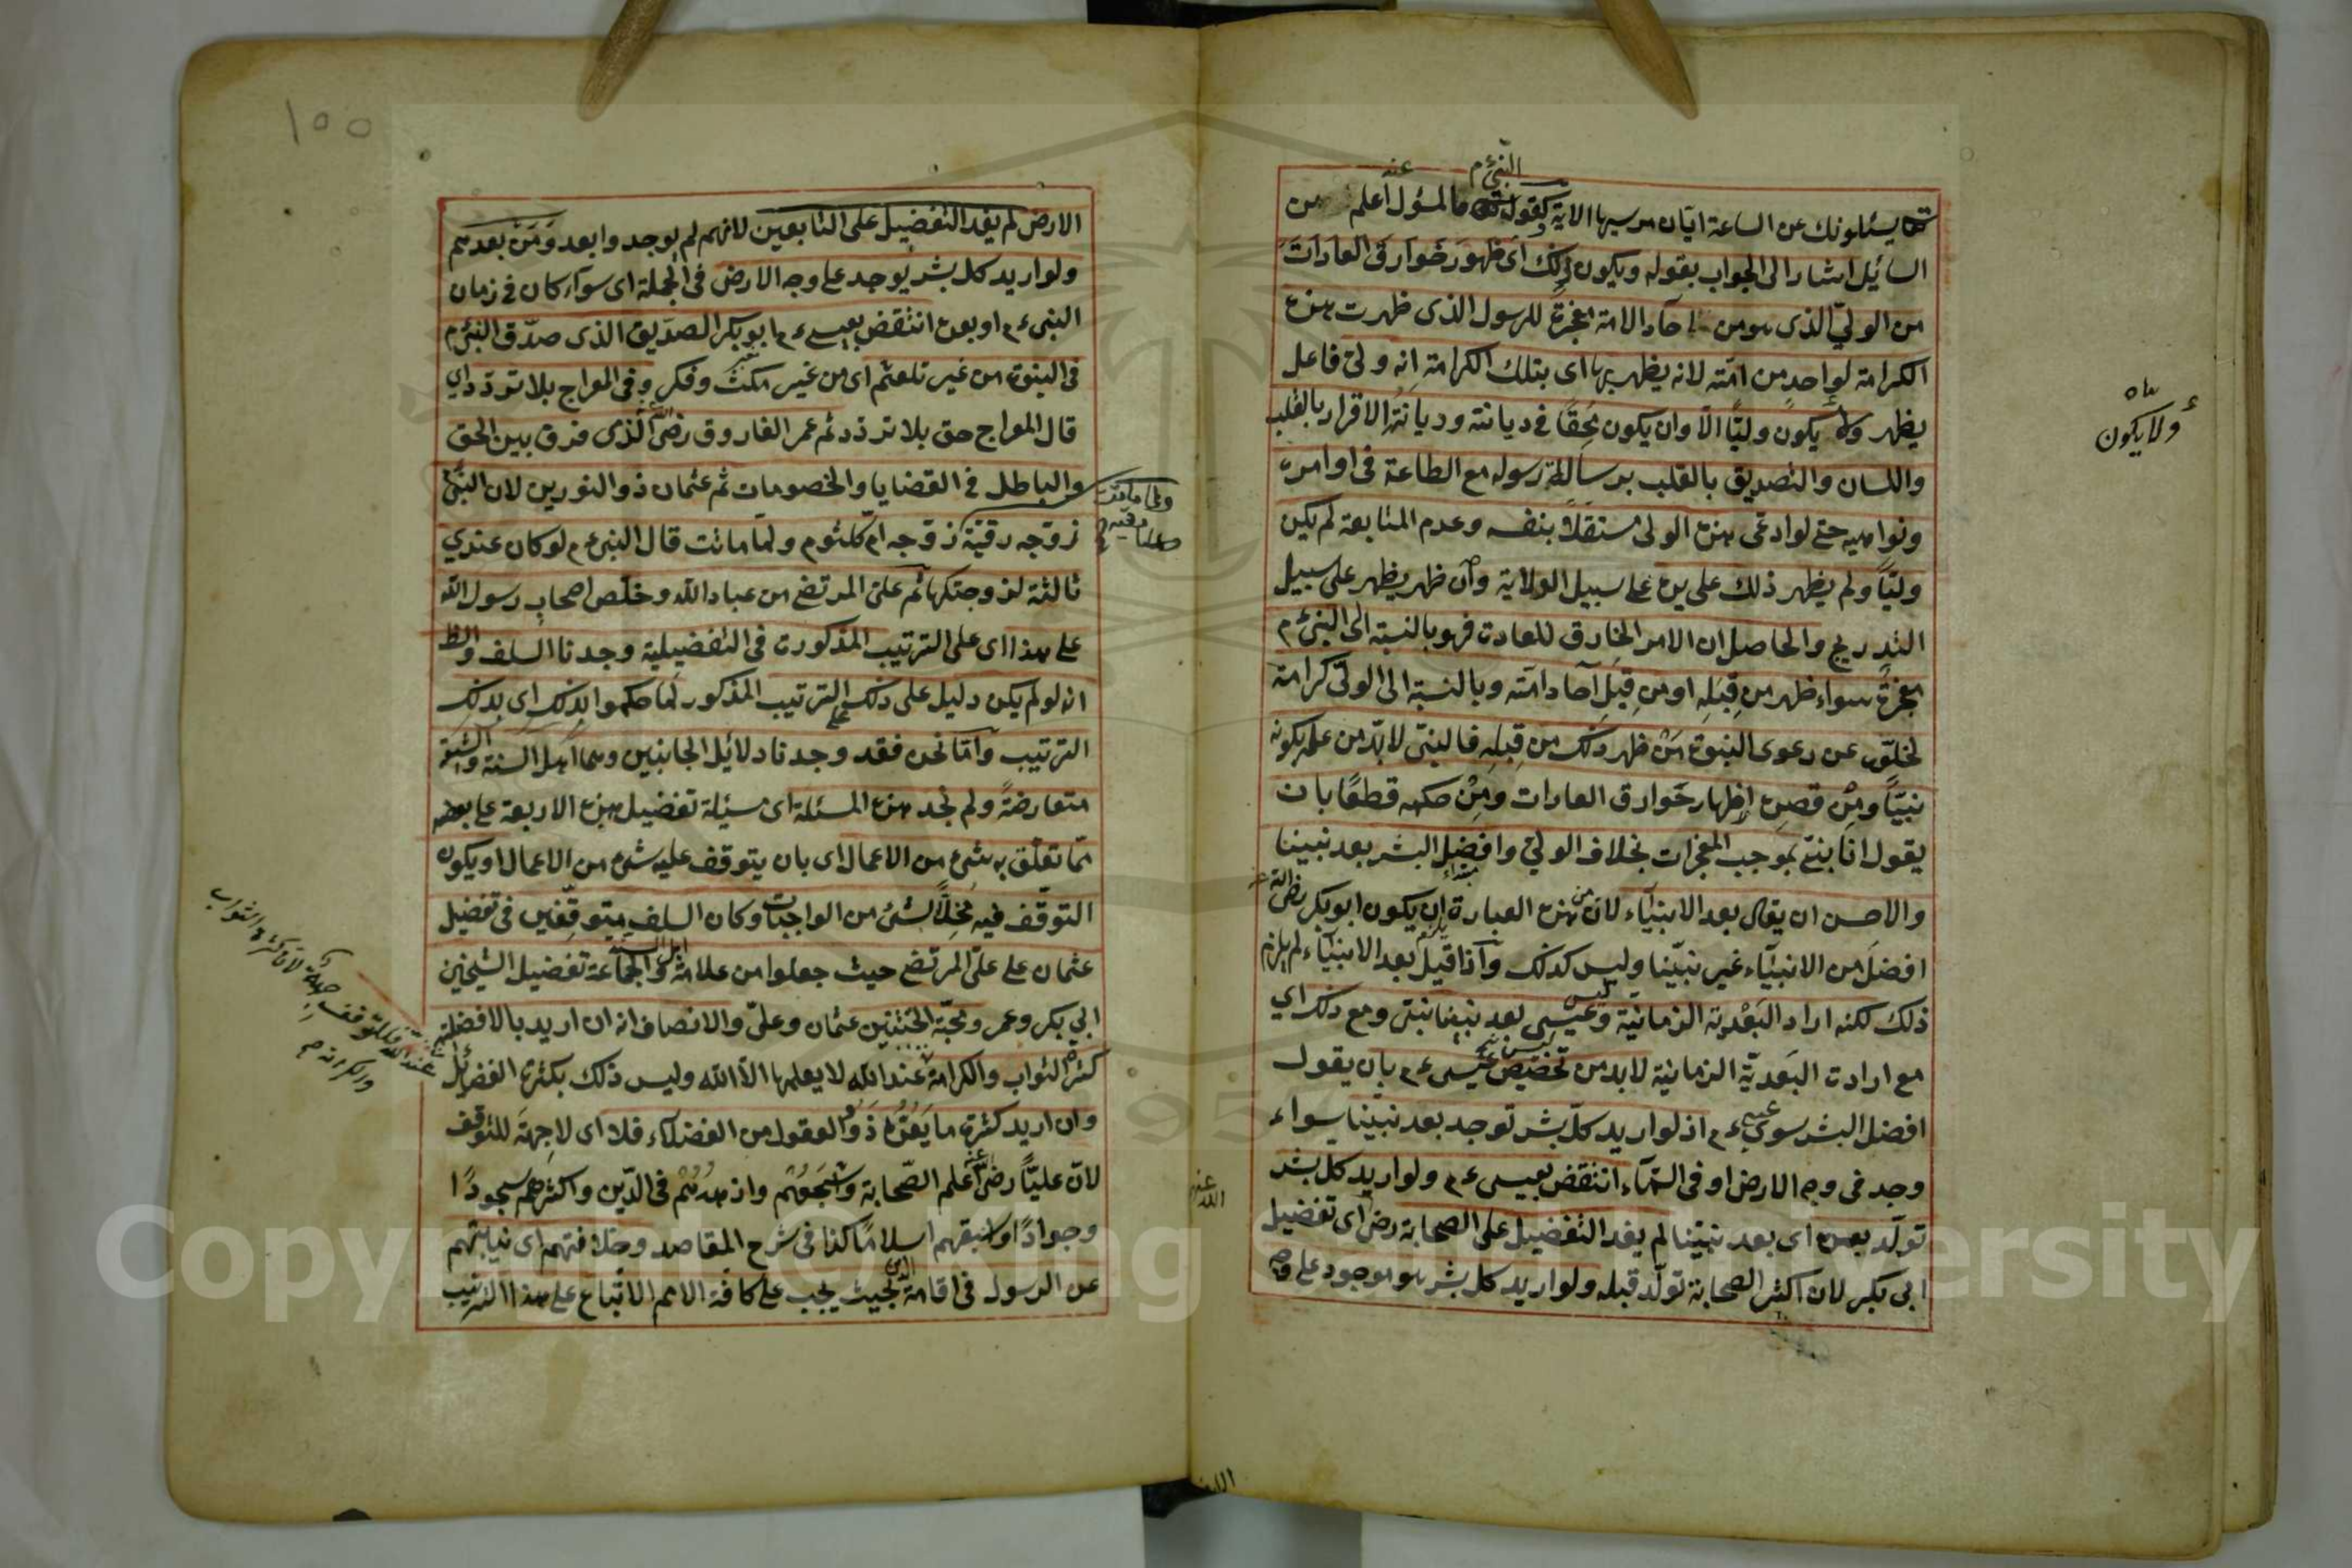 يسئلونك عن الساعة ايان مرسيها الاية وكقول النبي ءم ما المسؤل عنه اعلم من
السائل اشار الى الجواب بقوله ويكون ذلك اى ظهور خوارق العادات
من الولي الذى هو من احاد الامة معجزة للرسول الذى ظهرت هذه
الكرامة لواحد من امته لانه يظهر بها اى بتلك الكرامة انه ولى فاعل
يظهر ولا يكون وليا الا وان يكون محقا فى ديانته وديانته الاقرار بالقلب
واللسان والتصديق بالقلب برسالة رسوله مع الطاعة فى اوامره
ونواهيه حتى لو ادعى هذه الولى مستقلا بنفسه وعدم المتابعة لم يكن
وليا ولم يظهر ذلك على يده على سبيل الولاية وان ظهر يظهر على سبيل
التدريج والحاصل ان الامر الخارق للعادة فهو بالنسبة الى النبي ءم
معجزة سواء ظهر من قبله او من قبل آحاد امته وبالنسبة الى الولى كرامة
لخلوه عن دعوى النبوة من ظهر ذلك من قبله فالنبى لا بد من علمه بكونه
نبيا ومن قصده اظهار خوارق العادات ومن حكمه قطعا بان
يقول انا نبى بموجب المعجزات بخلاف الولى وافضل البشر بعد نبينا
والاحسن ان يقال بعد الانبياء لان من هذه العبارة ان يكون ابو بكر رضى الله عنه
افضل من الانبياء غير نبينا وليس كذلك واذا قيل بعد الانبياء لم يلزم
ذلك لكنه اراد البعدية الزمانية وليس بعد نبينا نبى ومع ذلك اي
مع ارادت البعدية الزمانية لا بد من تخصيص عيسى ءم بان يقول
افضل البشر سوى عيسى ءم اذ لو اريد كل بشر توجد بعد نبينا سواء
وجد فى وجه الارض او فى السماء انتقض بعيسى ءم ولو اريد كل بشر
تولد بعده اى بعد نبينا لم يفد التفضيل على الصحابة رضى الله عنه اى تفضيل
ابى بكر لان اكثر الصحابة تولد قبله ولو اريد كل بشر هو موجود على وجه
ولا يكون
الارض لم يفد التفضيل على التابعين لانهم لم يوجدوا بعد ومن بعدهم
ولو اريد كل بشر يوجد على وجه الارض فى الجملة اى سواء كان فى زمان
النبى ءم او بعده انتقض بعيسى ءم ابو بكر الصديق الذى صدق النبى ءم
فى النبوة من غير تلعثم اى من غير مكث وفكر وفى المعراج بلا تردد اي
قال المعراج حق بلا تردد ثم عمر الفاروق رضى الله الذى فرق بين الحق
والباطل فى القضايا والخصومات ثم عثمان ذو النورين لان النبى
زوجه رقية زوجه ام كلثوم ولما ماتت قال النبى ءم لو كان عندي
ثالثة لزوجتكها ثم على المرتضى من عباد الله وخلص اصحاب رسول الله
على هذا اى على الترتيب المذكورة فى التفضيلية وجدنا السلف والظ
انه لو لم يكن دليل على ذلك الترتيب المذكور لما حكموا بذلك اى بذلك
الترتيب واما نحن فقد وجدنا دلائل الجانبين وهما اهل السنة والشيعة
متعارضة ولم نجد هذه المسئلة اى مسئلة تفضيل هذه الاربعة على بعض
مما تعلق به شئ من الاعمال اى بان يتوقف عليه شئ من الاعمال او يكون
التوقف فيه مخلا لشئ من الواجبات وكان السلف متوقفين فى تفضيل
عثمان على على المرتضى حيث جعلوا من علامة اهل السنة والجماعة تفضيل الشيخين
ابي بكر وعمر ومحبة الختنين عثمان وعلى والانصاف انه ان اريد بالافضلية
كثرة الثواب والكرامة عند الله لا يعلمها الا الله وليس ذلك بكثرة الفضائل
وان اريد كثرة ما يعده ذوو العقول من الفضلاء فلا اى لا جهة للتوقف
لان عليا رضى الله عنه اعلم الصحابة واشجعهم وازهدهم فى الدين واكثرهم سجودا
وجوادا واسبقهم اسلاما كذا فى شرح المقاصد وخلافتهم اى نيابتهم
عن الرسول فى اقامة الدين بحيث يجب على كافة الامم الاتباع على هذا الترتيب
ولما ماتت
رقية
فللتوقف جهة لان كثرة الثواب
عند الله
والكرامة
١٥٥
Copyright © King University
195